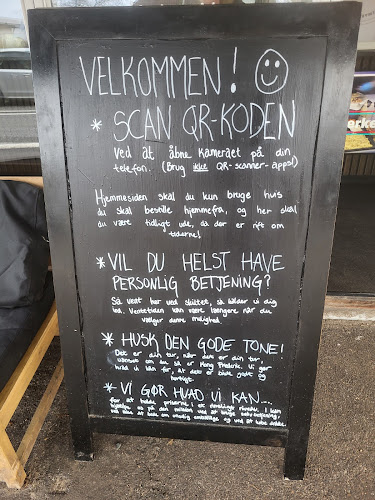 VELKOMMEN!
* SCAN QR-KODEN
Ved at åbne kameraet på din
telefon. (Brug ikke QR-scanner-apps!)
Hjemmesiden skal du kun bruge hvis
du skal bestille hjemmefra, og her skal
du være tidligt ude, da der er rift om
tiderne!
* VIL DU HELST HAVE
PERSONLIG BETJENING?
Så vent her ved skiltet, så kalder vi dig
ind. Ventetiden kan være længere når du
vælger denne mulighed.
* HUSK DEN GODE TONE!
Det er din tur, når det er din tur,
uanset om du så er Kong Frederik. Vi gør
hvad vi kan for, at det er både godt og
hurtigt.
* VI GØR HVAD VI KAN...
for at holde priserne i et